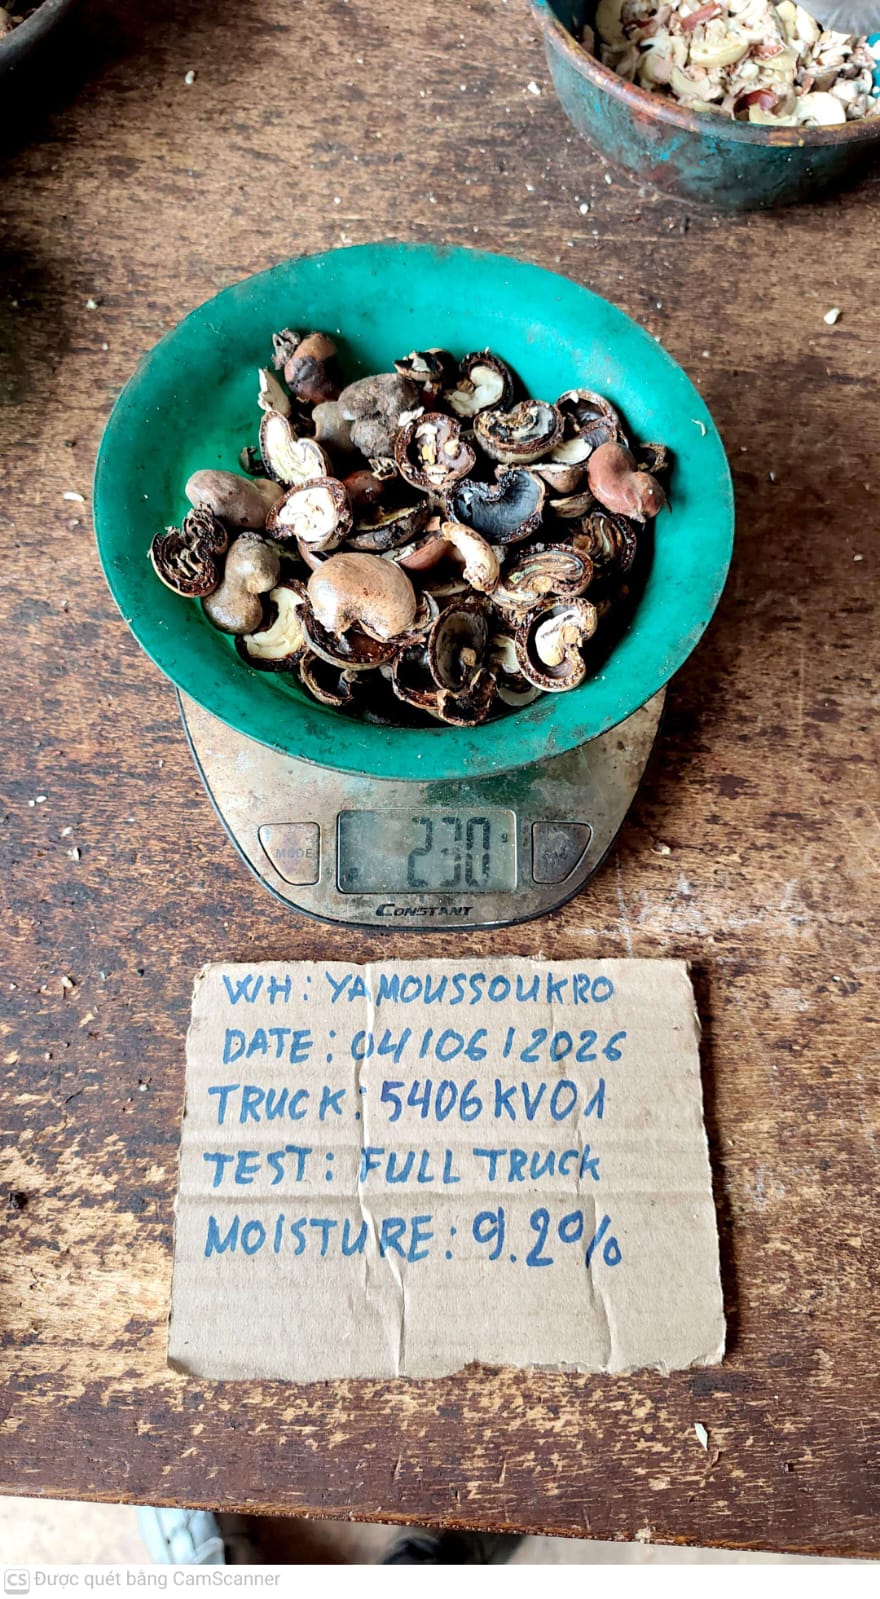 MODE
230 g
CONSTANT
WH: YAMOUSSOUKRO
DATE: 04/06/2026
TRUCK: 5406KV01
TEST: FULL TRUCK
MOISTURE: 9.2%
CS Được quét bằng CamScanner